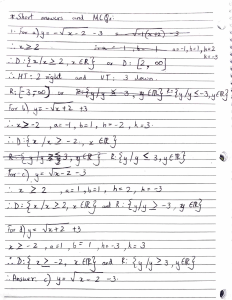 * Short answers and MCQs:
1. For a) y = -√x-2 - 3
∴ x ≥ 2 a=-1, b=1, h=2 k=-3
∴ D: {x/x ≥ 2, x∈R} or D: [2, ∞[
∴ HT: 2 right and VT: 3 down.
R: {y/y ≤ -3, y∈R}
For b) y = -√x+2 + 3
∴ x ≥ -2, a=-1, b=1, h=-2, k=3.
∴ D: {x/x ≥ -2, x∈R}
R: {y/y ≤ 3, y∈R}
For c) y = √x-2 - 3
∴ x ≥ 2, a=1, b=1, h=2, k=-3
∴ D: {x/x ≥ 2, x∈R} and R: {y/y ≥ -3, y∈R}
For d) y = √x+2 + 3
x ≥ -2, a=1, b=1, h=-3, k=3
∴ D: {x ≥ -2, x∈R} and R: {y/y ≥ 3, y∈R}
∴ Answer: c) y = √x-2 - 3.